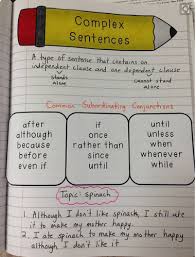 Complex
Sentences
A type of sentence that contains an
independent clause and one dependent clause
stands
alone
cannot stand
alone
Common Subordinating Conjunctions
after
although
because
before
even if
if
once
rather than
since
until
until
unless
when
whenever
while
Topic: spinach
1. Although I don't like spinach, I still ate
it to make my mother happy.
2. I ate spinach to make my mother happy
although I don't like it